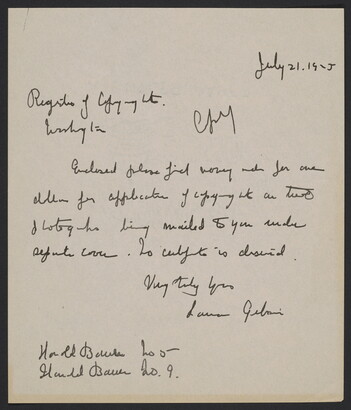 July 21. 1925
Register of Copyrights.
Washington
Enclosed please find money order for one
dollar for application of copyright on two
photographs being mailed to you under
separate cover. No certificate is desired.
Very truly yours
Laura Gilpin
Harold Bauer No 5
Harold Bauer No. 9.